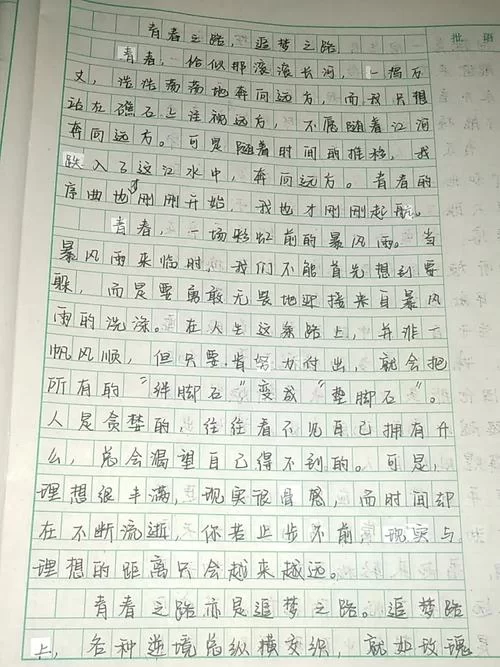 青春之路，追梦之路
批阅
青春，恰似那滚滚长河，一揭万
丈，浩浩荡荡地奔向远方，而我只想
站在礁石上注视远方，不愿随着江河
奔向远方。可是随着时间的推移，我
跌入了这江水中，奔向远方。青春的
序曲也才刚刚开始，我也才刚刚起航。
青春，一场彩虹前的暴风雨。当
暴风雨来临时，我们不能首先想到要
躲，而是要勇敢无畏地迎接来自暴风
雨的洗涤。在人生这条路上，并非一
帆风顺，但只要肯努力付出，就会把
所有的“绊脚石”变成“垫脚石”。
人是贪婪的，往往看不见自己拥有什
么，总会渴望自己得不到的。可是，
理想很丰满，现实很骨感，而时间却
在不断流逝，你若止步不前，现实与
理想的距离只会越来越远。
青春之路亦是追梦之路。追梦路
上，各种逆境总纵横交织，就如玫瑰